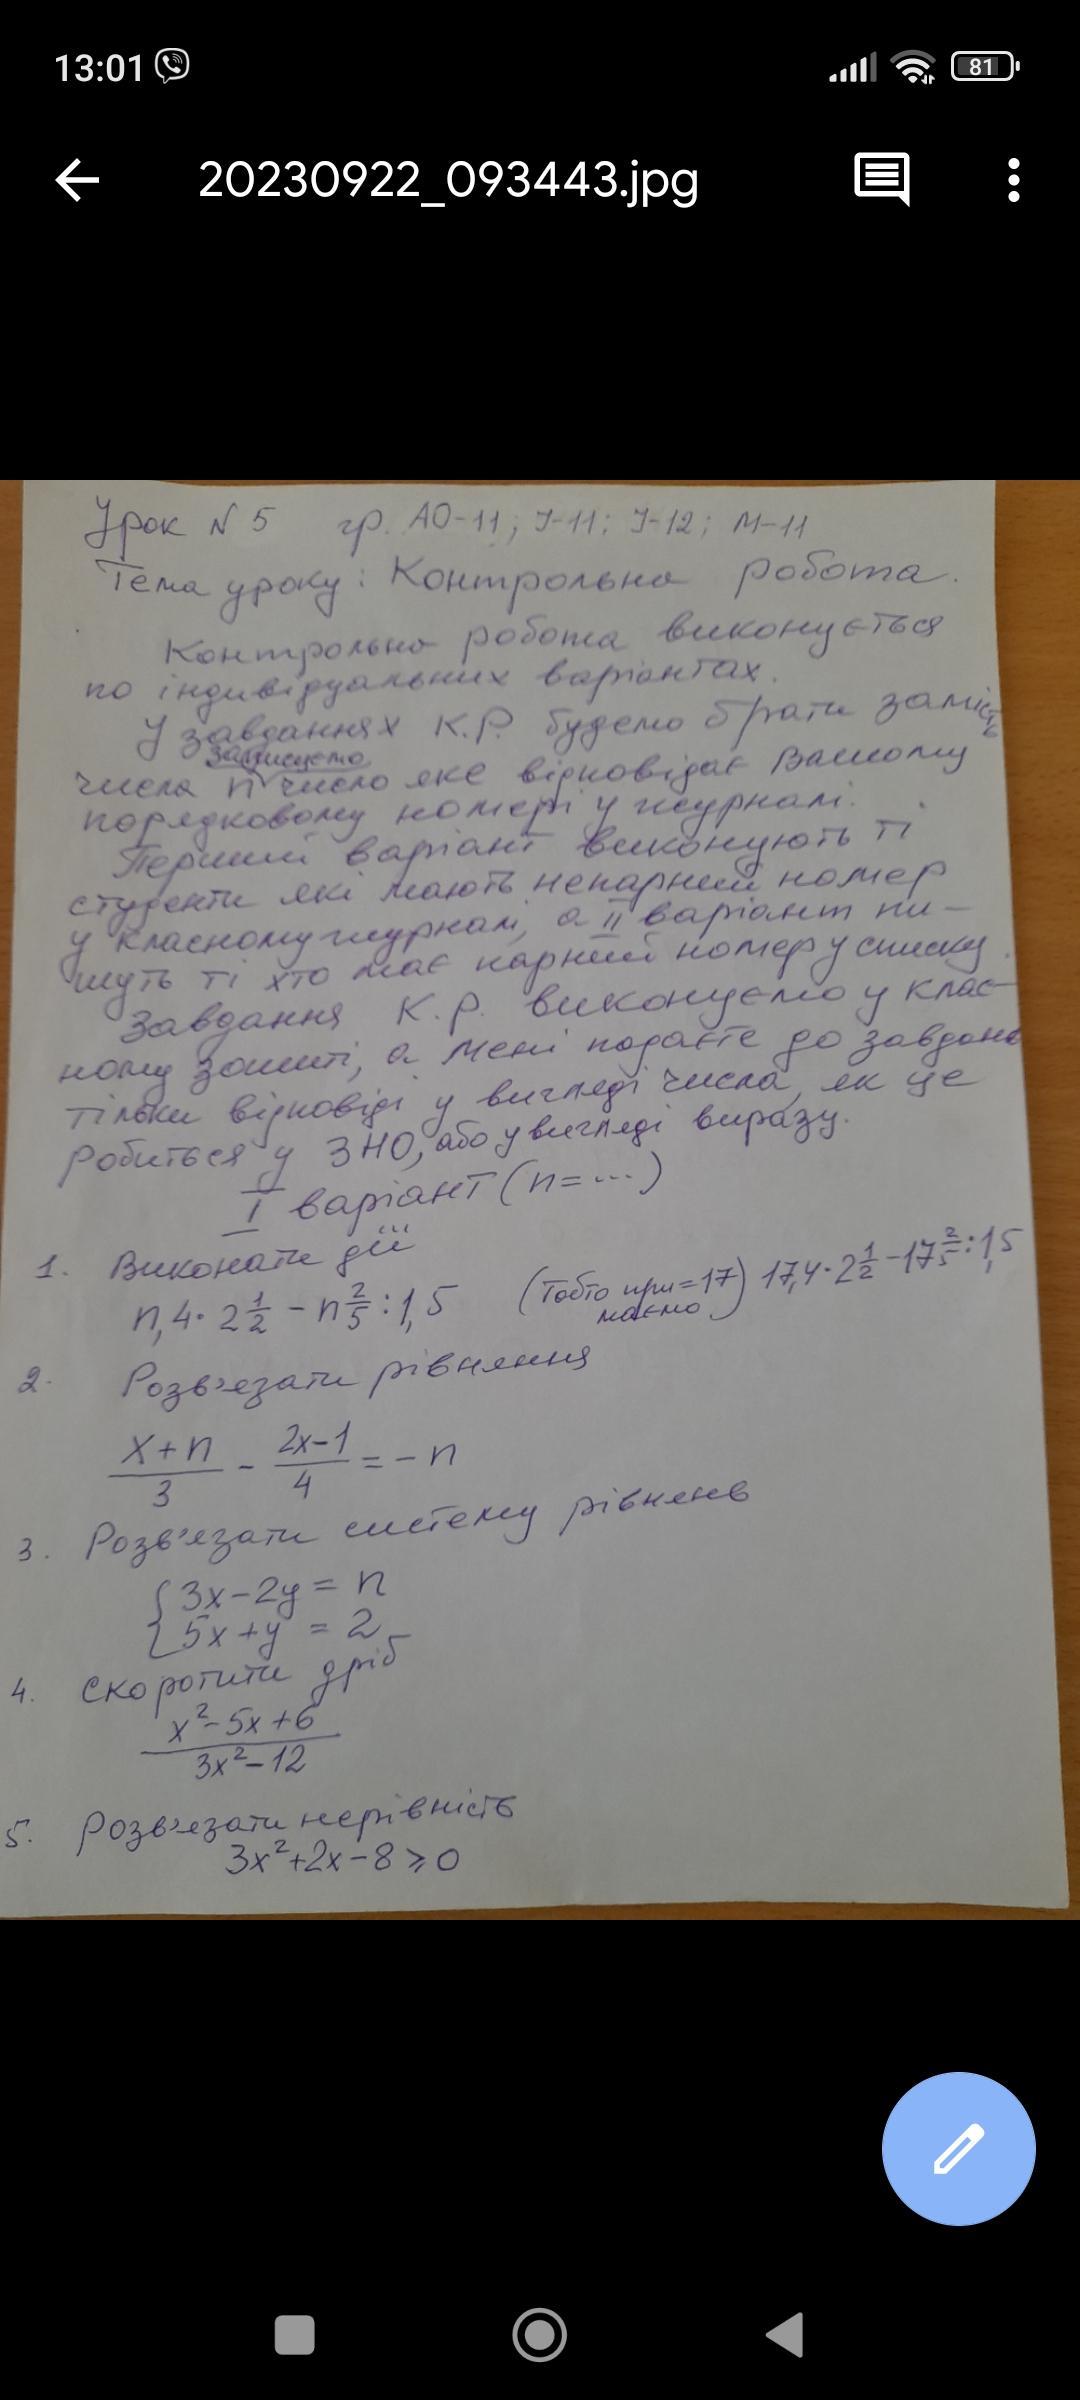 13:01
81
20230922_093443.jpg
Урок N 5 гр. АО-11; J-11; J-12; М-11
Тема уроку: Контрольна робота.
Контрольна робота виконується
по індивідуальних варіантах.
У завданнях К.Р. будемо брати замість
запишемо
числа n число яке відповідає Вашому
порядковому номері у журналі.
Перший варіант виконують ті
студенти які мають непарний номер
у класному журналі, а II варіант пи-
шуть ті хто має парний номер у списку.
Завдання К.Р. виконуємо у клас-
ному зошиті, а мені подаєте до завдань
тільки відповіді у вигляді числа, як це
робиться у ЗНО, або у вигляді виразу.
I варіант (n=...)
1. Виконати дії
n,4·2 1/2 - n 2/5 : 1,5 (тобто при =17) 17,4·2 1/2 - 17 2/5 : 1,5
маємо
2. Розв'язати рівняння
(x+n)/3 - (2x-1)/4 = -n
3. Розв'язати систему рівнянь
{3x-2y = n
5x+y = 2
4. Скоротити дріб
x²-5x+6
3x²-12
5. Розв'язати нерівність
3x²+2x-8⩾0